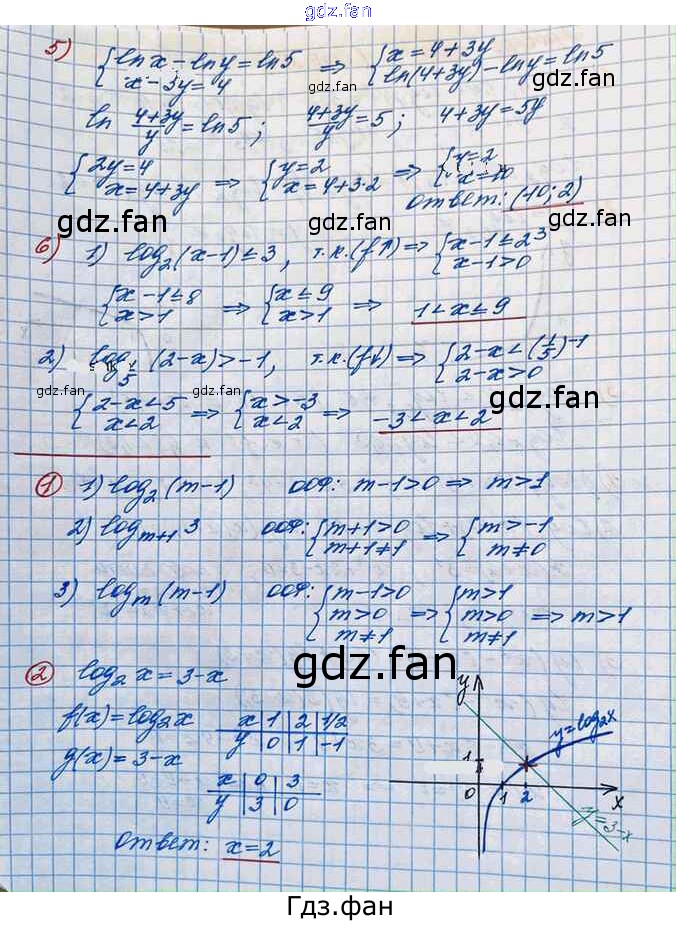 gdz.fan
5) { ln x − ln y = ln 5 ⇒ { x = 4 + 3y
x − 3y = 4 ln(4+3y) − ln y = ln 5
gdz.fan gdz.fan
ln (4+3y)/y = ln 5; (4+3y)/y = 5; 4 + 3y = 5y
{ 2y = 4 ⇒ { y = 2 ⇒ { y = 2
x = 4 + 3y x = 4 + 3·2 x = 10
ответ: (10; 2)
gdz.fan gdz.fan gdz.fan
6) 1) log₂(x−1) ≤ 3, т.к.(f↑) ⇒ { x − 1 ≤ 2³
x − 1 > 0
{ x − 1 ≤ 8 ⇒ { x ≤ 9 ⇒ 1 < x ≤ 9
x > 1 x > 1
2) log_{1/5}(2−x) > −1, т.к.(f↓) ⇒ { 2 − x < (1/5)⁻¹
2 − x > 0
gdz.fan gdz.fan gdz.fan
{ 2 − x < 5 ⇒ { x > −3 ⇒ −3 < x < 2
x < 2 x < 2
1 1) log₂(m−1) ООФ: m − 1 > 0 ⇒ m > 1
2) log_{m+1} 3 ООФ: { m + 1 > 0 ⇒ { m > −1
m + 1 ≠ 1 m ≠ 0
3) log_m(m−1) ООФ: { m − 1 > 0 { m > 1
m > 0 ⇒ m > 0 ⇒ m > 1
m ≠ 1 m ≠ 1
gdz.fan
2 log₂ x = 3 − x
f(x) = log₂ x
x 1 2 1/2
y 0 1 −1
g(x) = 3 − x
x 0 3
y 3 0
y
y = log₂x
1
0 1 2 x
y = 3 − x
ответ: x = 2
Гдз.фан